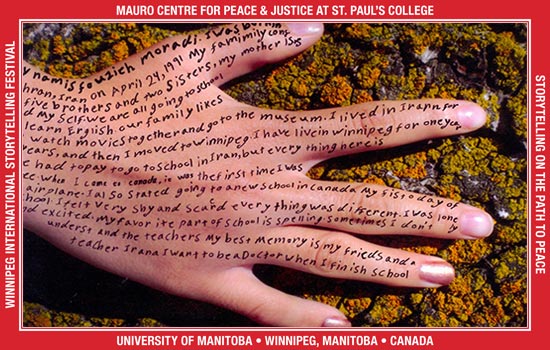 MAURO CENTRE FOR PEACE & JUSTICE AT ST. PAUL'S COLLEGE
WINNIPEG INTERNATIONAL STORYTELLING FESTIVAL
STORYTELLING ON THE PATH TO PEACE
moradi. I was
hron, Iran, on April 29, 1991 My famimly cons
five brothers and two sisters, my mother is 45
d My self we are all going to school
learn English our family likes
watch movies together and go to the museum. I lived in Iran, for
ears, and then I moved to Winnipeg. I have live in winnipeg for one year
e had to pay to go to school in Iran, but every thing here is
ee. who I come to canada, it was the first time I was
airplane. I also Stated going to a new school in canada My fist o day of
hool. I felt very shy and scared every thing was different. I was lone
nd excited. My favorite part of school is spelling. sometimes I don't
underst and the teachers My best Memory is my frieds and a
teacher Iran a I want to be a Doctor when I finish school
UNIVERSITY OF MANITOBA • WINNIPEG, MANITOBA • CANADA